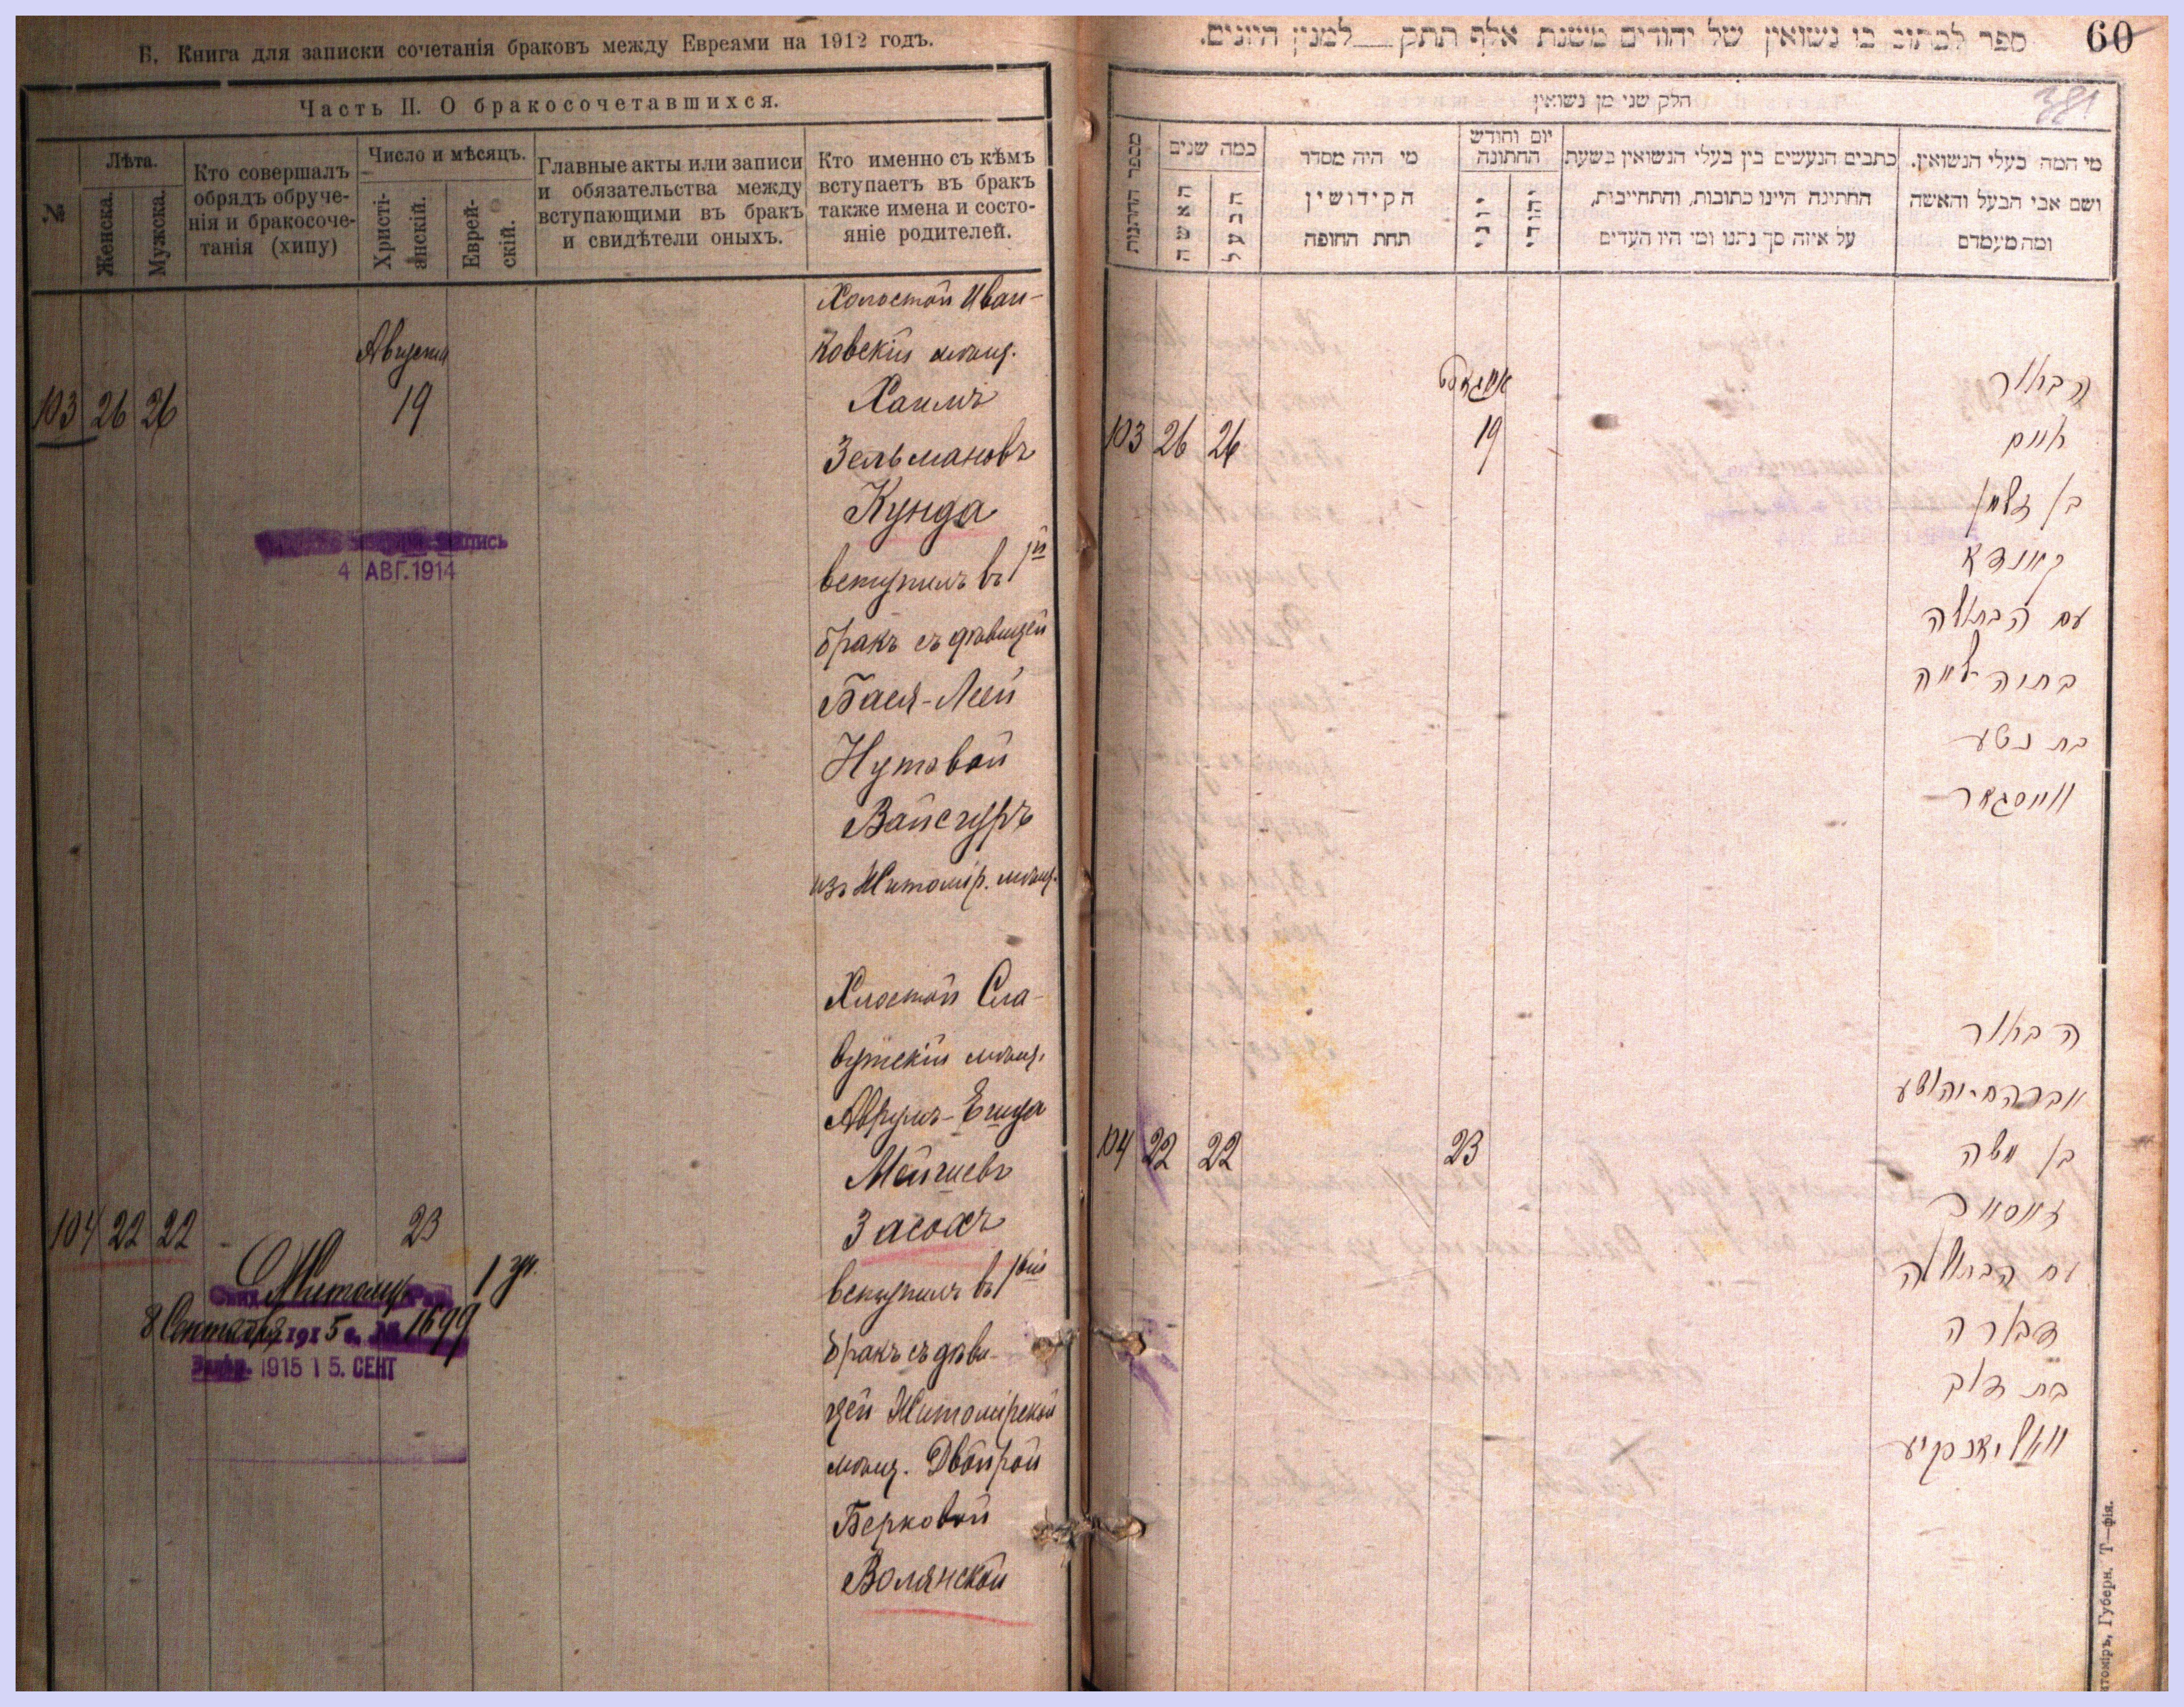 Б. Книга для записки сочетанія браковъ между Евреями на 1912 годъ.
Часть II. О бракосочетавшихся.
№
Лѣта.
Женска.
Мужска.
Кто совершалъ
обрядъ обруче-
нія и бракосоче-
танія (хипу)
Число и мѣсяцъ.
Христі-
анскій.
Еврей-
скій.
Главные акты или записи
и обязательства между
вступающими въ бракъ
и свидѣтели оныхъ.
Кто именно съ кѣмъ
вступаетъ въ бракъ
также имена и состо-
яніе родителей.
Августа
103 26 26 19
Холостой Иван-
ковскій мѣщ.
Хаимъ
Зельмановъ
Кунда
вступилъ въ 1й
бракъ съ дѣвицей
Бася-Леей
Нутовой
Вайсгуръ
изъ Житомір. мѣщ.
запись
4 АВГ. 1914
104 22 22 23
Хлостой Сла-
вутскій мѣщ.
Аврумъ-Егища
Мойшевъ
Засохъ
вступилъ въ 1ый
бракъ съ дѣви-
цей Житомірской
мѣщ. Двойрой
Берковой
Волянской
8 Сентября 1915 г. № 1699
1915 15. СЕНТ
60
381
ספר לכתוב בו נשואין של יהודים משנת אלף תתק למנין היונים.
חלק שני מן נשואין
מספר החתונות
כמה שנים
האשה
הבעל
מי היה מסדר
הקידושין
תחת החופה
יום וחודש
החתונה
יוני
יהודי
כתבים הנעשים בין בעלי הנשואין בשעת
החתונה היינו כתובות, והתחייבות,
על איזה סך נתנו ומי היו העדים
מי המה בעלי הנשואין.
ושם אבי הבעל והאשה
ומה מעמדם
אויגוסט
103 26 26 19
הבחור
חיים
בן זלמן
קונדא
עם הבתולה
בתיה לאה
בת נטע
ווייסגור
104 22 22 23
הבחור
אברהם-יהושע
בן משה
זאסאוב
עם הבתולה
דבורה
בת דוב
וואליאנסקיע
Губерн. Т—фія.